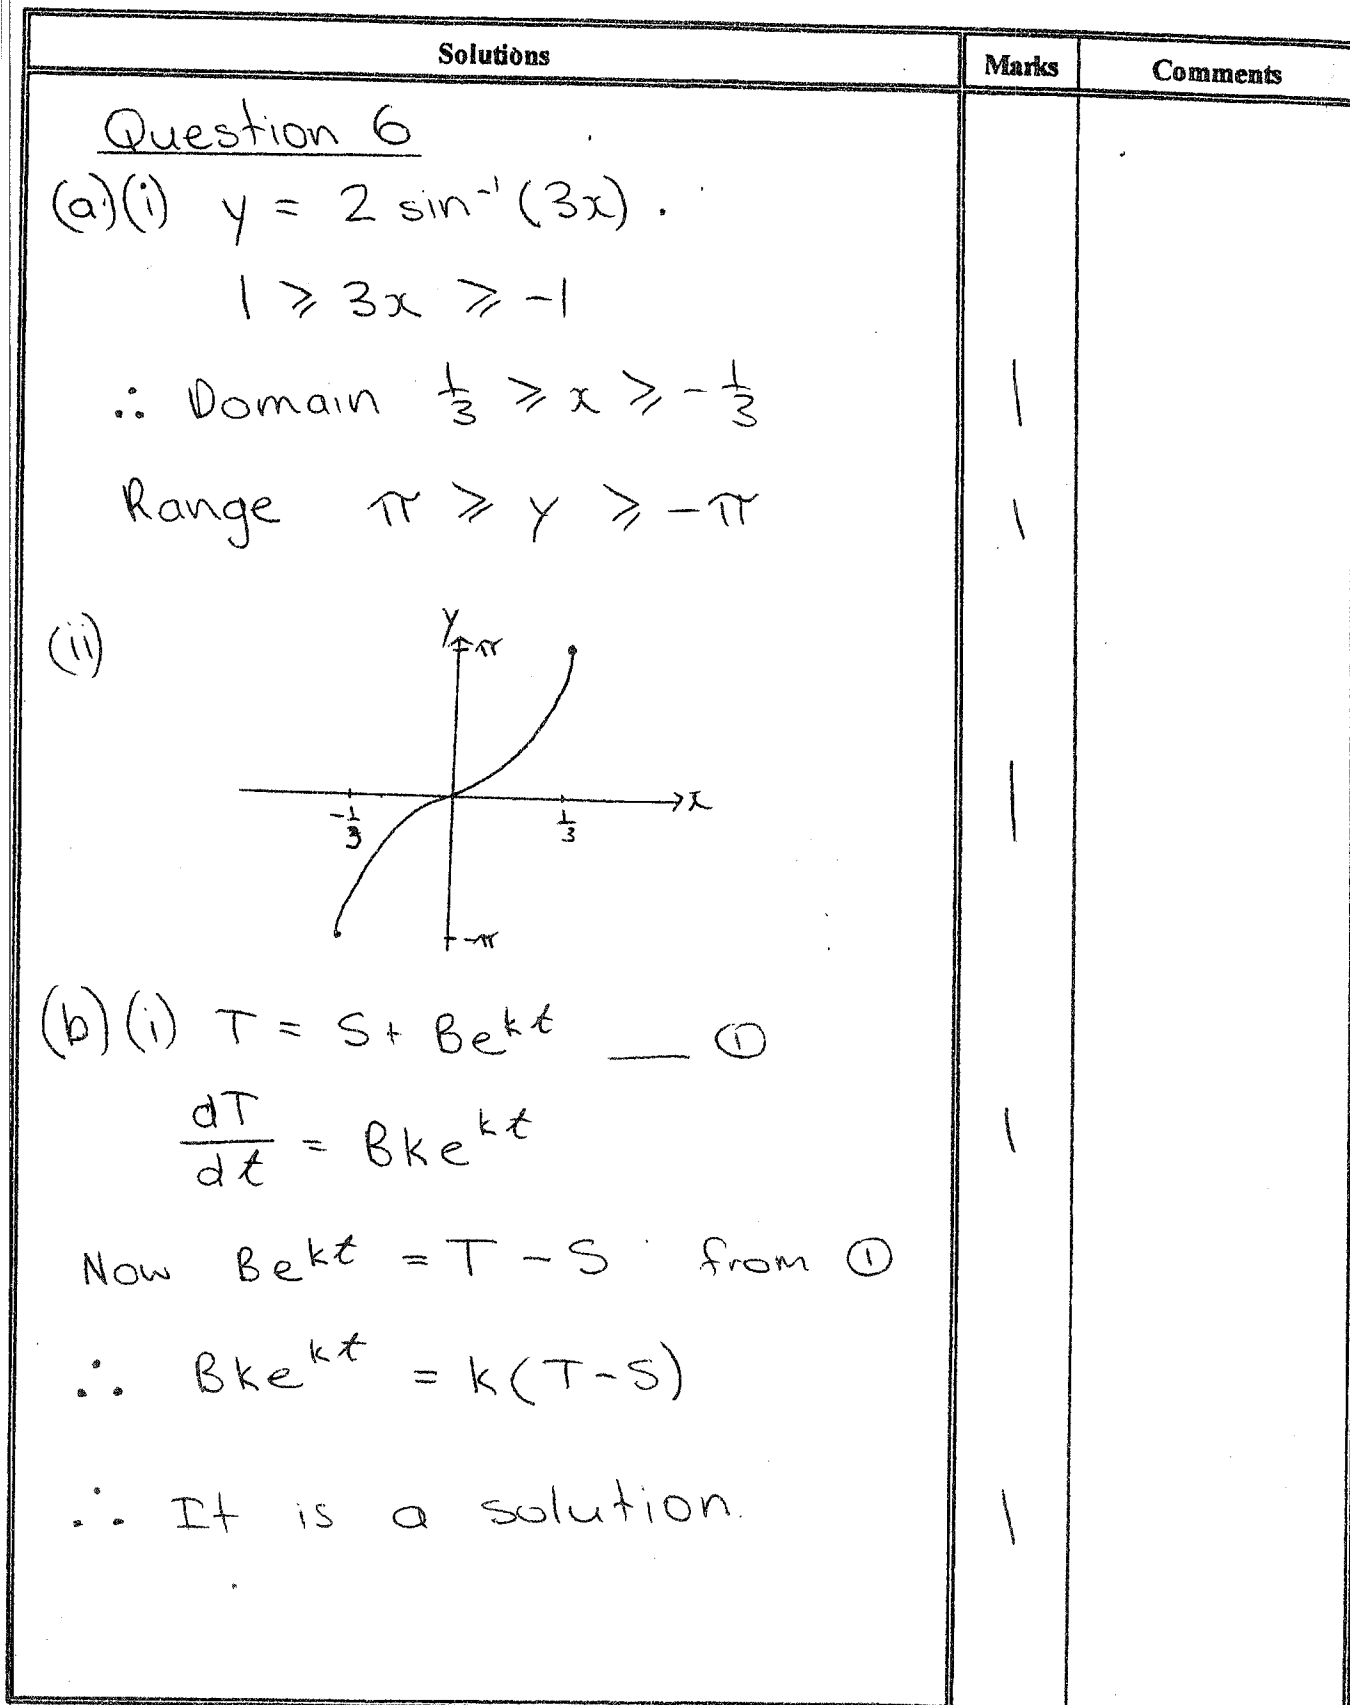 Solutions Marks Comments
Question 6
(a)(i) y = 2 sin⁻¹ (3x).
1 ⩾ 3x ⩾ -1
∴ Domain 1/3 ⩾ x ⩾ -1/3 1
Range π ⩾ y ⩾ -π 1
(ii)
y
π
-1/3 1/3 x 1
-π
(b)(i) T = S + Be^kt — ①
dT/dt = Bke^kt 1
Now Be^kt = T - S from ①
∴ Bke^kt = k(T-S)
∴ It is a solution. 1